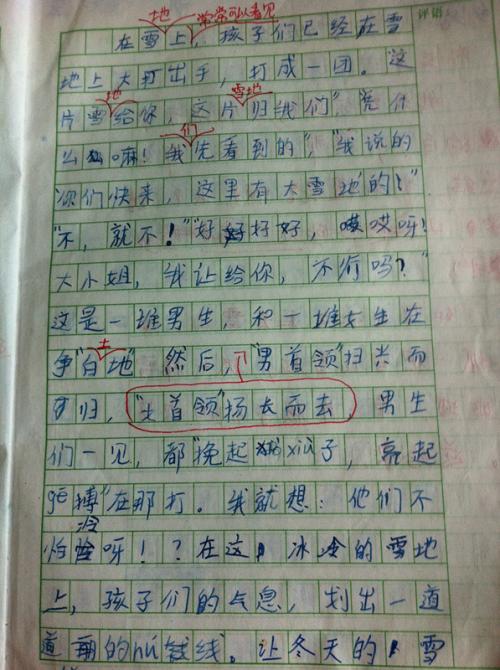 评语
地 常常可以看见
在雪上，孩子们已经在雪
地上大打出手，打成一团。这
地 雪地
片雪给你，这片归我们"凭什
们
么 嘛！我先看到的""我说的
你们快来，这里有大雪地的！"
"不，就不！""好好好好，哎哎呀！
大小姐，我让给你，不 吗？"
这是一堆男生，和一堆女生在
土
争"白地"然后，"男首领"扫兴而
归，"女首领"扬长而去，男生
们一见，都"挽起 xiù子，亮起
gē搏"在那打。我就想：他们不
冷
怕 呀！？在这，冰冷的雪地
上，孩子们的气息，划出一道
道 的 线。让冬天的，雪